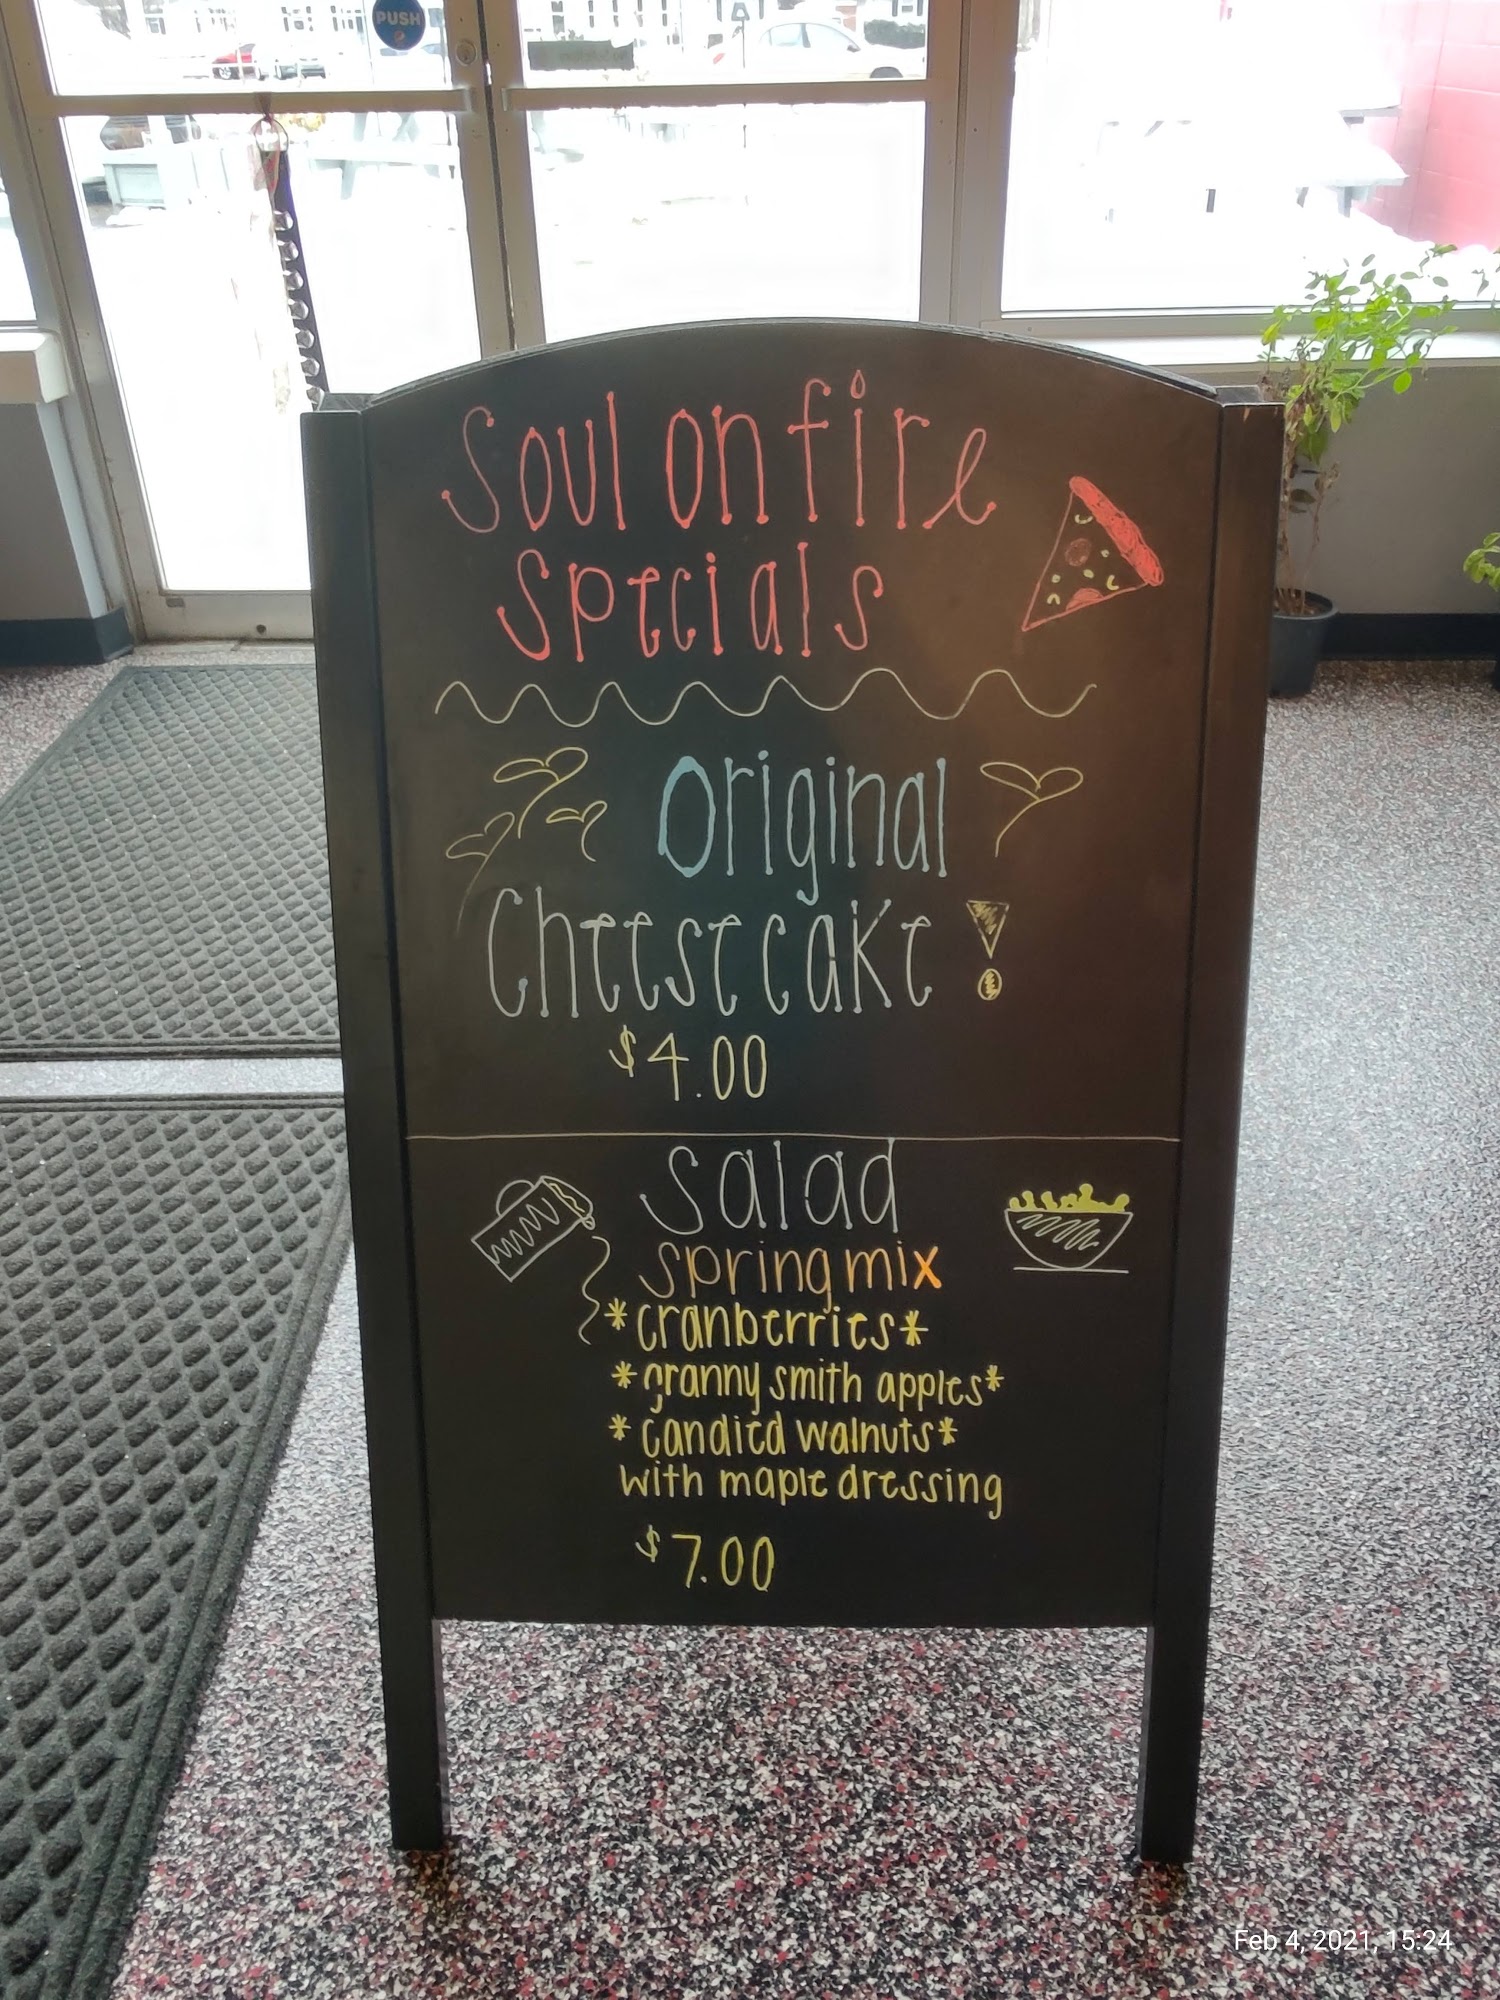 PUSH
Soul on fire
Specials
Original
Cheesecake!
$4.00
Salad
spring mix
*cranberries*
*granny smith apples*
*candied walnuts*
with maple dressing
$7.00
Feb 4, 2021, 15:24